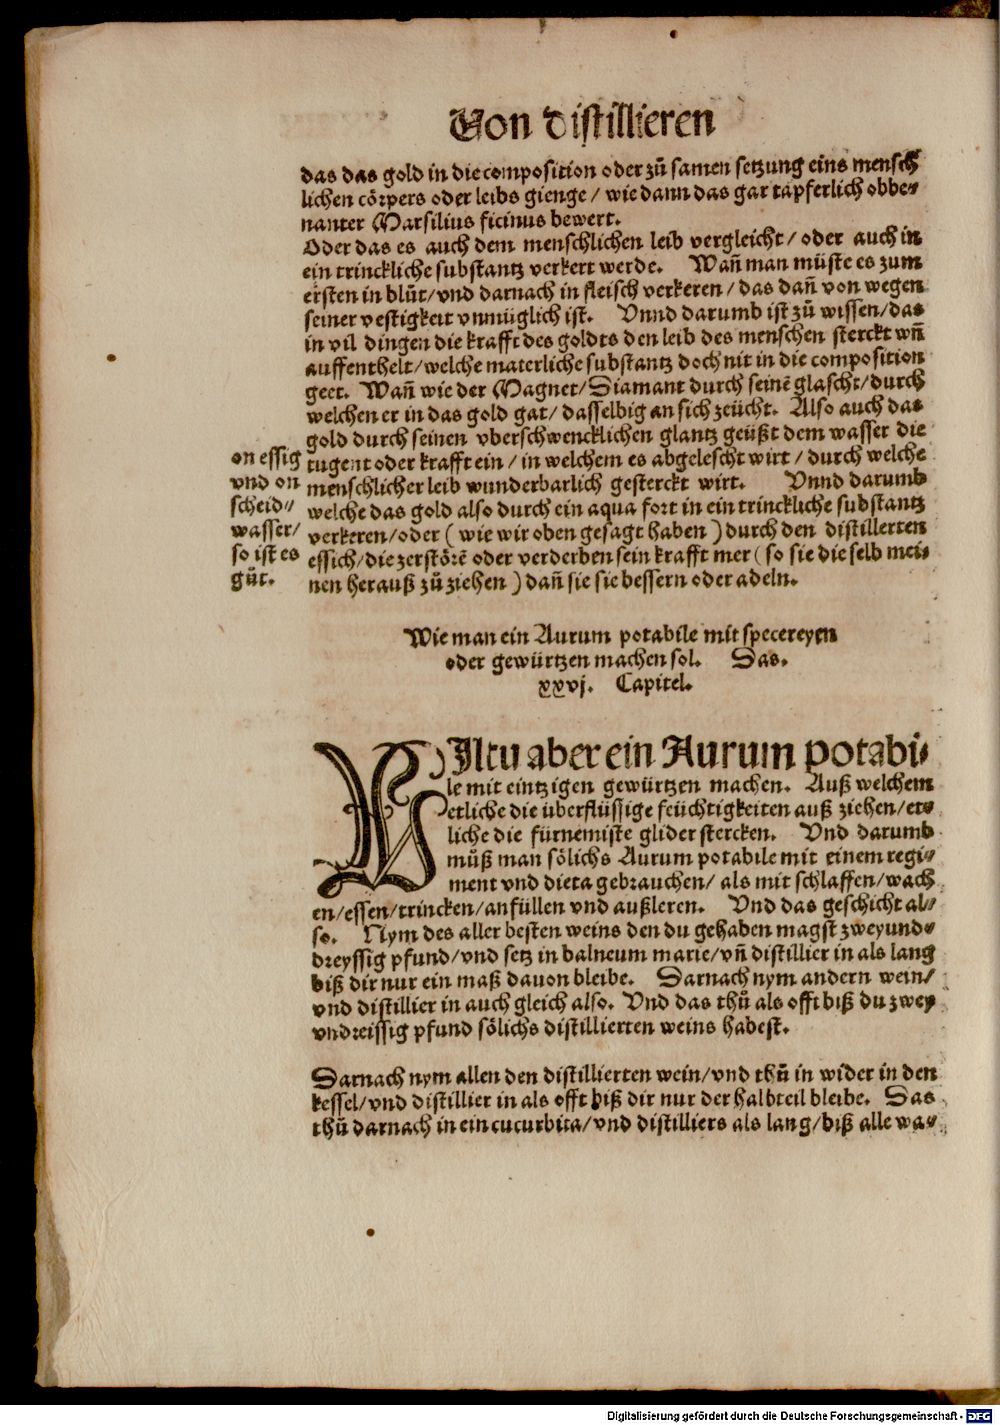 Von distillieren
das das gold in die composition oder zů samen setzung eins mensch
lichen cörpers oder leibs gienge / wie dann das gar tapferlich obbe⸗
nanter Marsilius ficinus bewert.
Oder das es auch dem menschlichen leib vergleicht / oder auch in
ein trinckliche substantz verkert werde. Wañ man müste es zum
ersten in blůt / vnd darnach in fleisch verkeren / das dañ von wegen
seiner vestigkeit vnmüglich ist. Vnnd darumb ist zů wissen / das
in vil dingen die krafft des goldts den leib des menschen sterckt vnñ
auffenthelt / welche materliche substantz doch nit in die composition
geet. Wañ wie der Magnet / Diamant durch seinē glascht / durch
welchen er in das gold gat / dasselbig an sich zeücht. Also auch das
gold durch seinen vberschwencklichen glantz geüßt dem wasser die
tugent oder krafft ein / in welchem es abgelescht wirt / durch welche
menschlicher leib wunderbarlich gesterckt wirt. Vnnd darumb
welche das gold also durch ein aqua fort in ein trinckliche substantz
verkeren / oder ( wie wir oben gesagt haben ) durch den distillerten
essich / die zerstörē oder verderben sein krafft mer ( so sie die selb mei⸗
nen herauß zů ziehen ) dañ sie sie bessern oder adeln.
on essig
vnd on
scheid⸗
wasser /
so ist es
gůt.
Wie man ein Aurum potabile mit specereyen
oder gewürtzen machen sol. Das.
xxvj. Capitel.
WIltu aber ein Aurum potabi⸗
le mit eintzigen gewürtzen machen. Auß welchem
etliche die überflüssige feüchtigkeiten auß ziehen / et⸗
liche die fürnemiste glider stercken. Vnd darumb
můß man sölichs Aurum potabile mit einem regi⸗
ment vnd dieta gebrauchen / als mit schlaffen / wach
en / essen / trincken / anfüllen vnd außleren. Vnd das geschicht al⸗
so. Nym des aller besten weins den du gehaben magst zweyund⸗
dreyssig pfund / vnd setz in balneum marie / vñ distillier in als lang
biß dir nur ein maß dauon bleibe. Darnach nym andern wein /
vnd distillier in auch gleich also. Vnd das thů als offt biß du zwey
vndreissig pfund sölichs distillierten weins habest.
Darnach nym allen den distillierten wein / vnd thů in wider in den
kessel / vnd distillier in als offt biß dir nur der halbteil bleibe. Das
thů darnach in ein cucurbita / vnd distilliers als lang / biß alle wa⸗
Digitalisierung gefördert durch die Deutsche Forschungsgemeinschaft - DFG